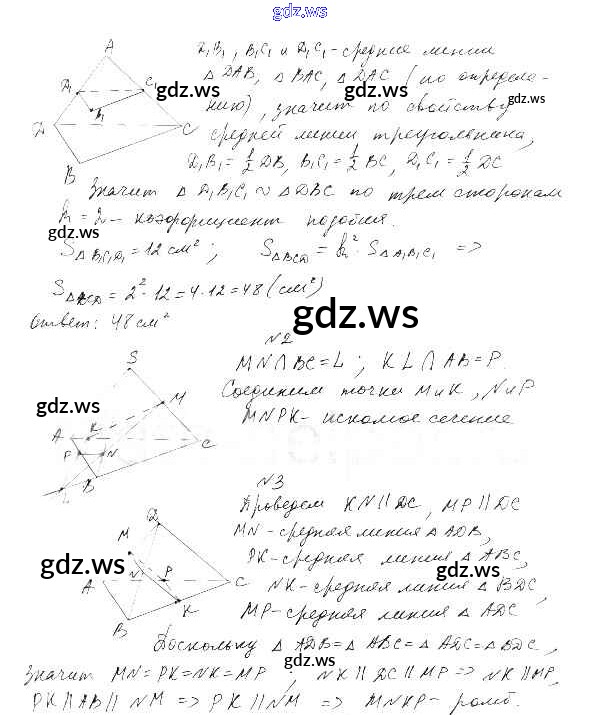 gdz.ws
D₁B₁, B₁C₁ и D₁C₁ - средние линии
△ DAB, △ BAC, △ DAC (по определе-
нию), значит по свойству
средней линии треугольника,
D₁B₁ = 1/2 DB, B₁C₁ = 1/2 BC, D₁C₁ = 1/2 DC
Значит △ D₁B₁C₁ ~ △ DBC по трем сторонам
k = 2 - коэффициент подобия.
S△B₁C₁D₁ = 12 см² ; S△BCD = k² · S△D₁B₁C₁ =>
S△BCD = 2² · 12 = 4 · 12 = 48 (см²)
Ответ: 48 см²
A
D₁
C₁
B₁
D
C
B
gdz.ws
gdz.ws
gdz.ws
gdz.ws
gdz.ws
№2
MN ∩ BC = L ; KL ∩ AB = P.
Соединим точки M и K, N и P
MNPK - искомое сечение
S
M
K
A
C
P
N
B
gdz.ws
gdz.ws
№3
Проведем KN || DC, MP || DC
MN - средняя линия △ ADB,
PK - средняя линия △ ABC,
NK - средняя линия △ BDC,
MP - средняя линия △ ADC
Поскольку △ ADB = △ ABC = △ ADC = △ BDC,
значит MN = PK = NK = MP ; NK || DC || MP => NK || MP,
PK || AB || NM => PK || NM => MNKP - ромб.
D
M
N
P
A
C
K
B
gdz.ws
gdz.ws
gdz.ws
gdz.ws
gdz.ws